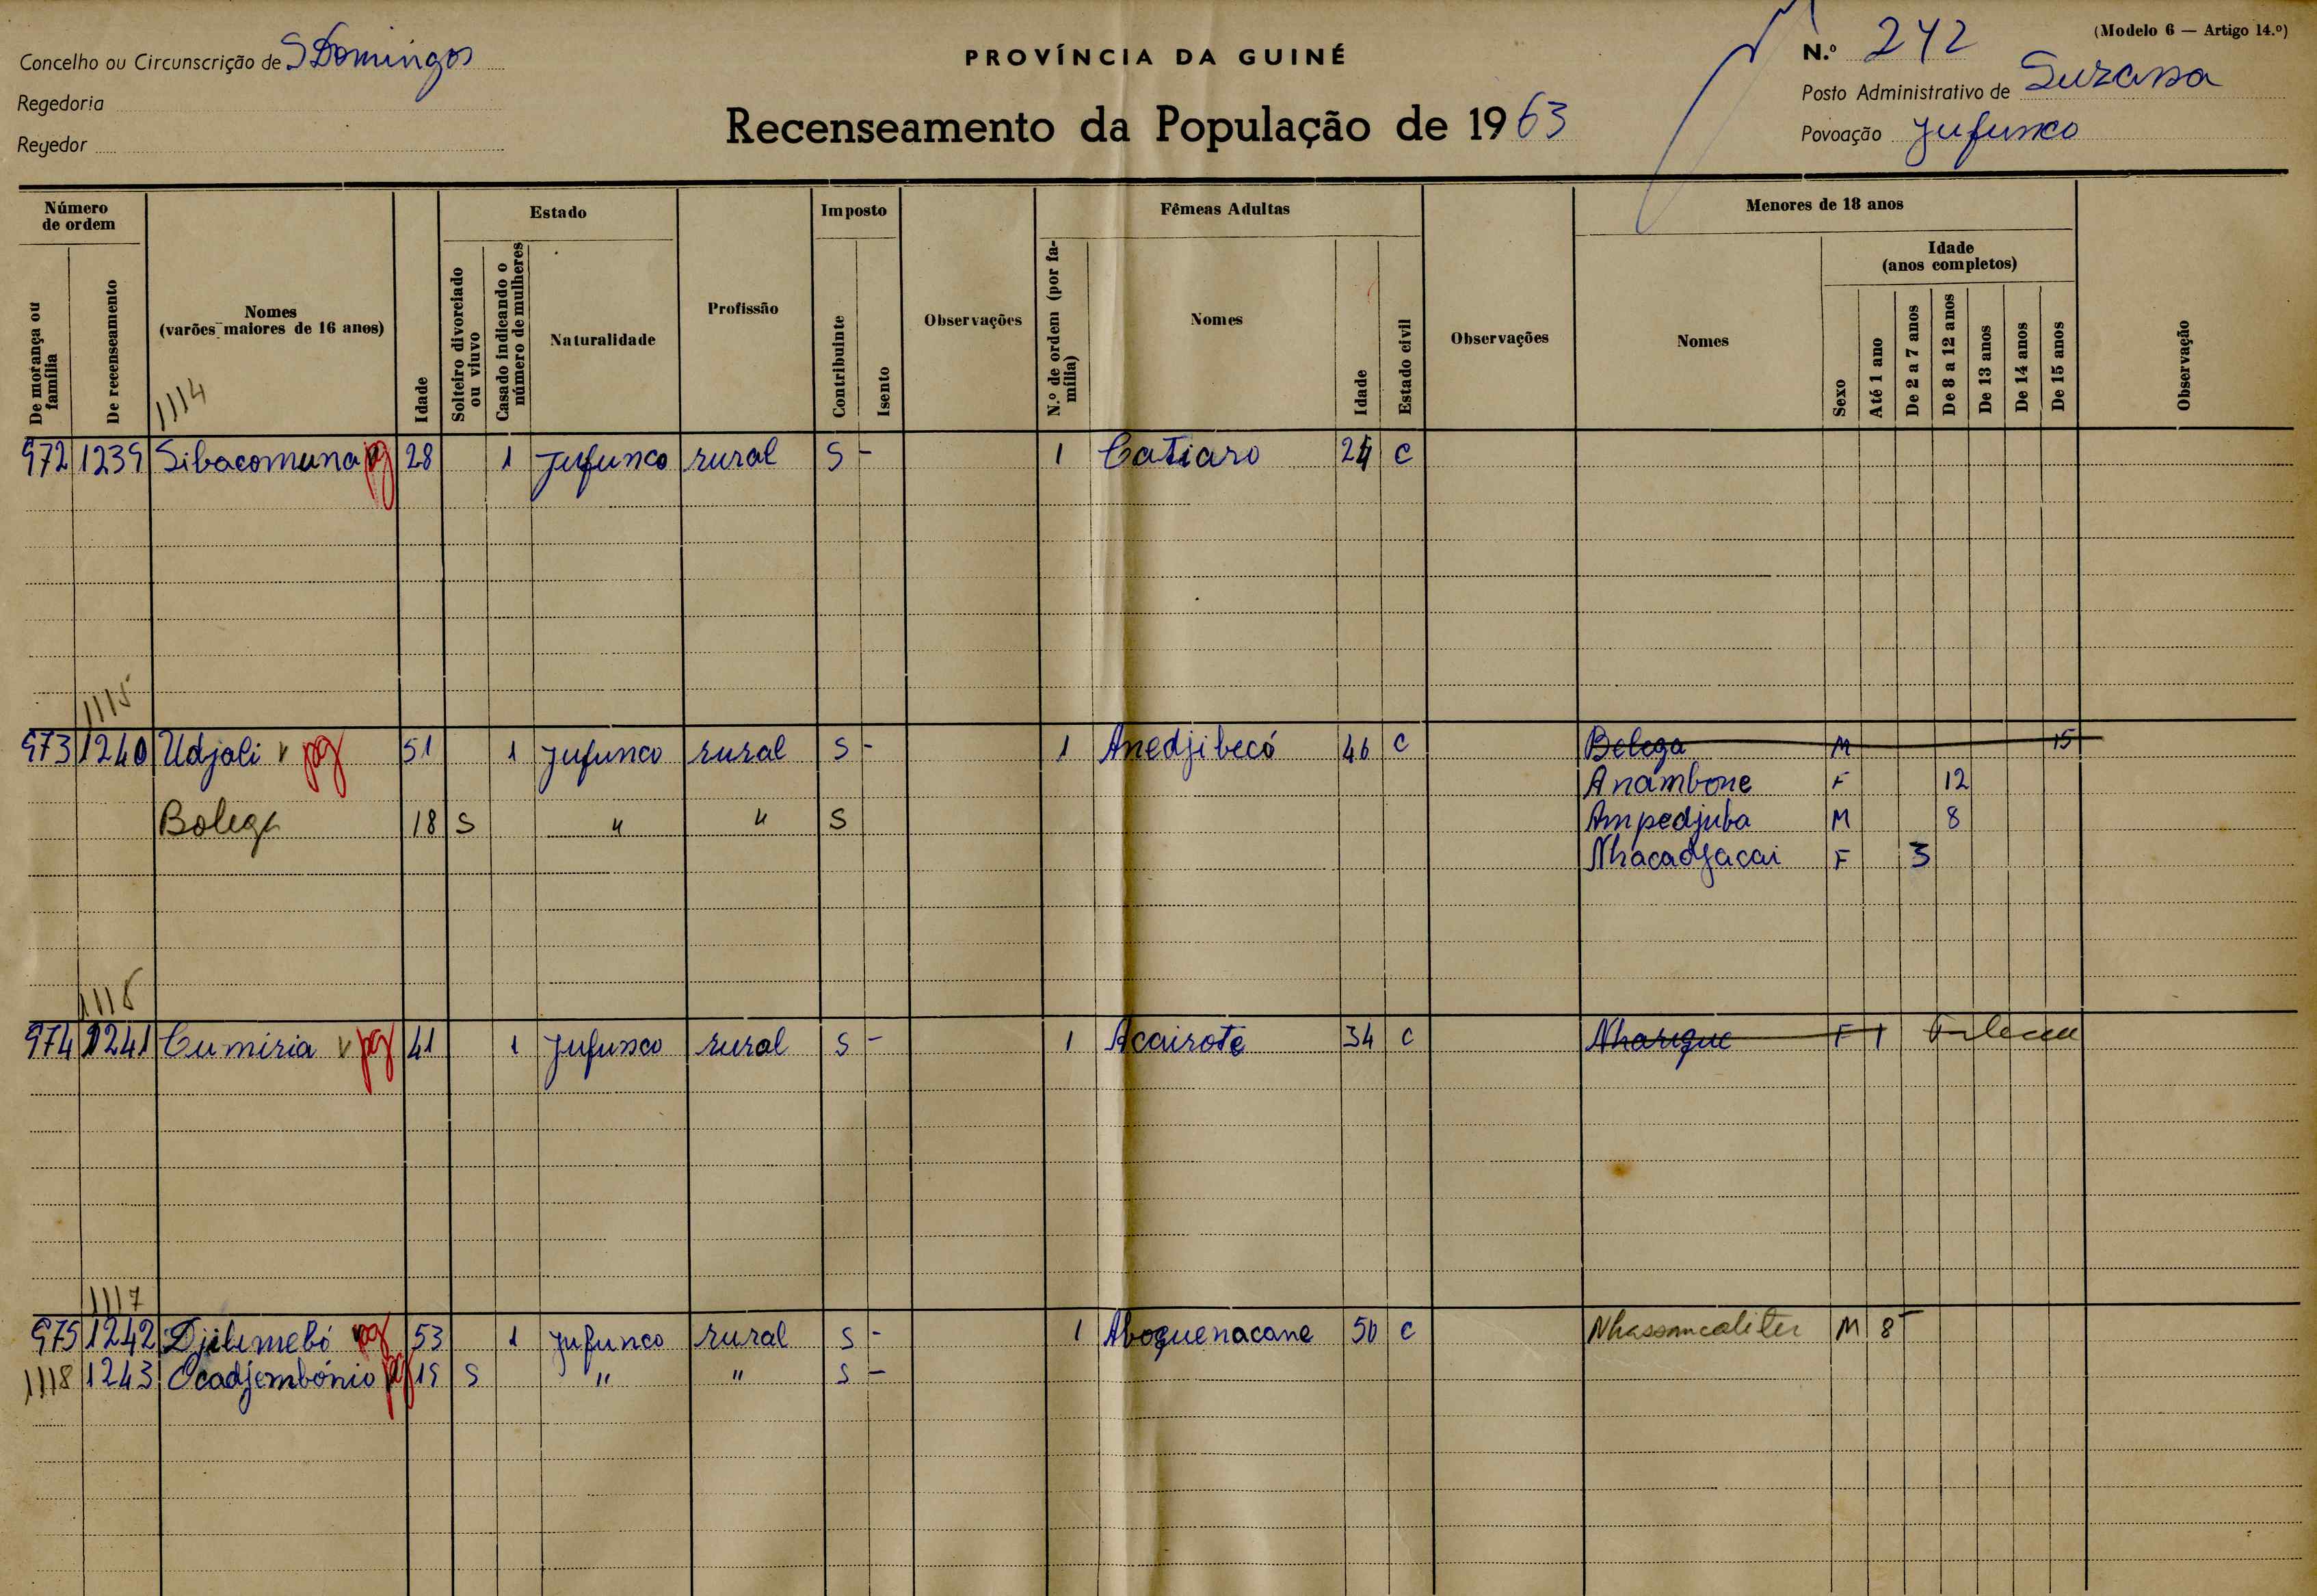 (Modelo 6 — Artigo 14.º)
Concelho ou Circunscrição de S Domingos
PROVÍNCIA DA GUINÉ
N.º 242
Regedoria
Posto Administrativo de Suzana
Regedor
Recenseamento da População de 1963
Povoação Jufunco
Número de ordem
De morança ou família
De recenseamento
Nomes (varões maiores de 16 anos)
1114
Idade
Estado
Solteiro divorciado ou viuvo
Casado indicando o número de mulheres
Naturalidade
Profissão
Imposto
Contribuinte
Isento
Observações
Fêmeas Adultas
N.º de ordem (por família)
Nomes
Idade
Estado civil
Observações
Menores de 18 anos
Nomes
Sexo
Idade (anos completos)
Até 1 ano
De 2 a 7 anos
De 8 a 12 anos
De 13 anos
De 14 anos
De 15 anos
Observação
972 1239 Sibacomuna pg 28 1 Jufunco rural S - 1 Catiaro 24 C
1115
973 1240 Udjali v pg 51 1 Jufunco rural S - 1 Anedjibecó 46 C Belega M 15
Anambone F 12
Bolega 18 S " " S Ampedjuba M 8
Nhacadjacai F 3
1116
974 1241 Cumiria v pg 41 1 Jufunco rural S - 1 Acairote 34 C Nharigue F 1
1117
975 1242 Djilemebó pg 53 1 Jufunco rural S - 1 Aboquenacane 50 C M 8
1118 1243 Ocadjembónio pg 19 S " " S -